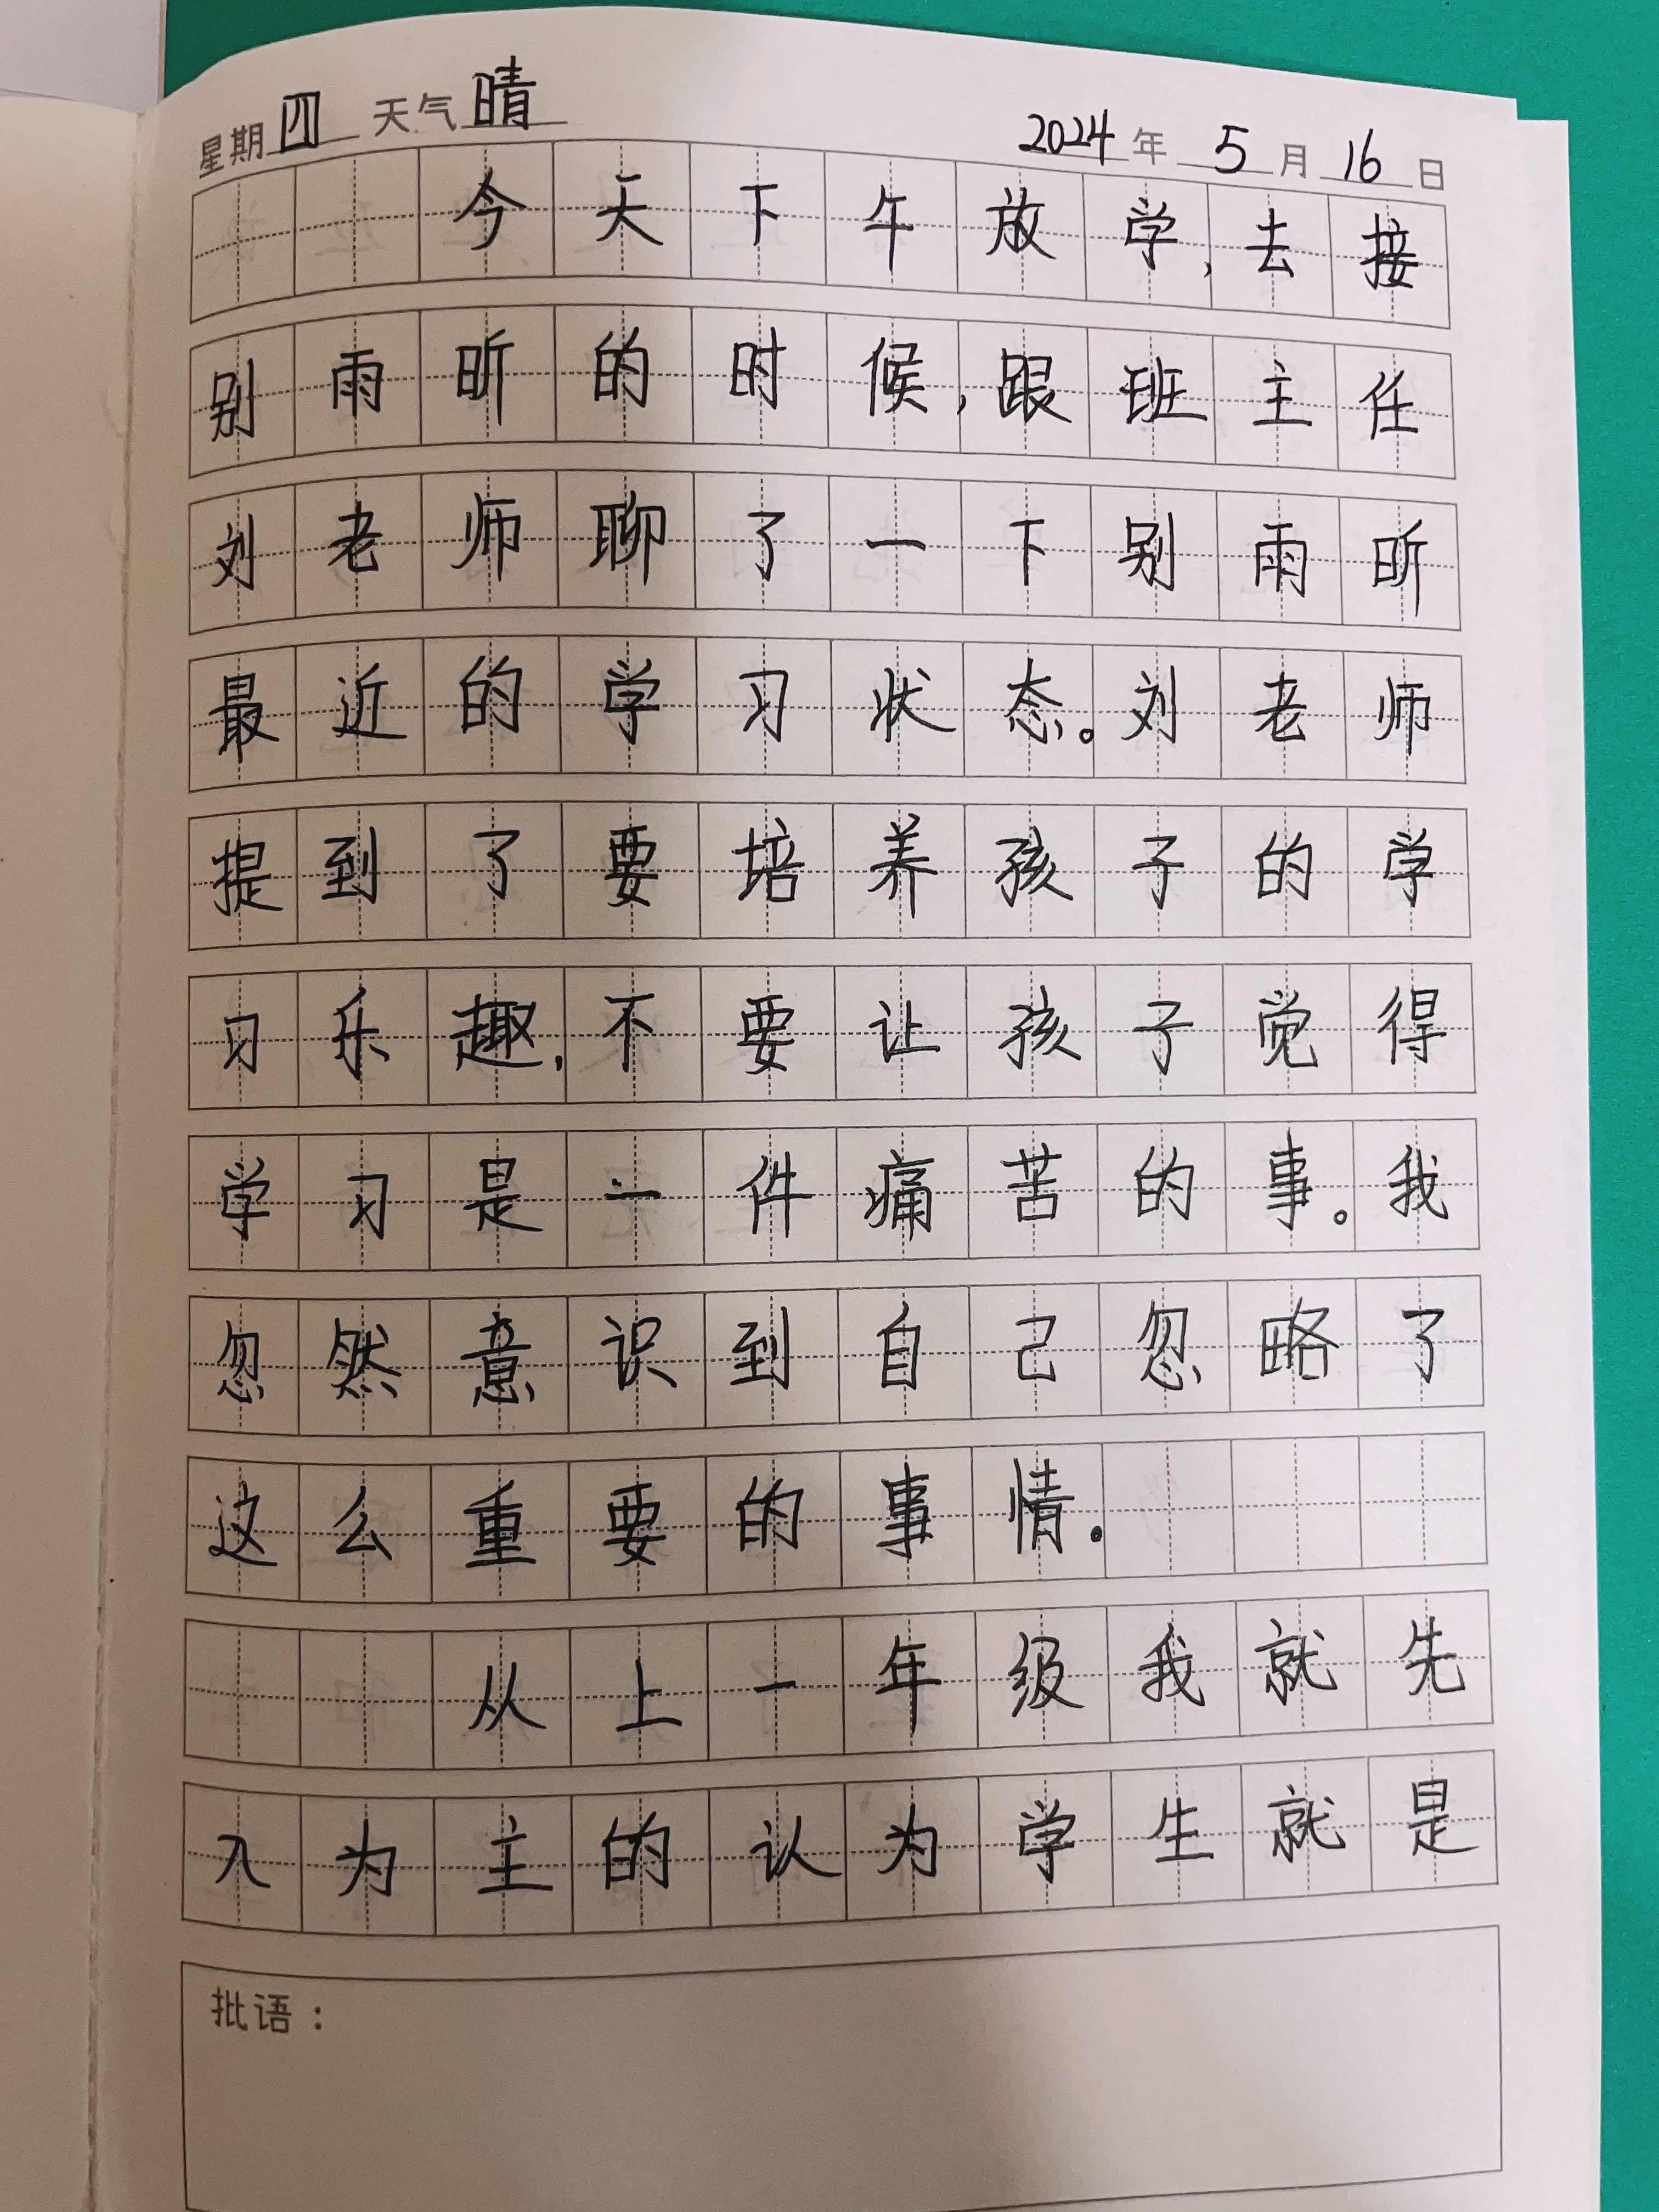 星期四 天气晴 2024年5月16日
今天下午放学,去接
别雨昕的时候,跟班主任
刘老师聊了一下别雨昕
最近的学习状态。刘老师
提到了要培养孩子的学
习乐趣,不要让孩子觉得
学习是一件痛苦的事。我
忽然意识到自己忽略了
这么重要的事情。
从上一年级我就先
入为主的认为学生就是
批语: